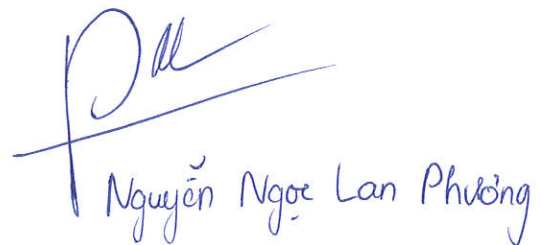 Nguyễn Ngọc Lan Phương